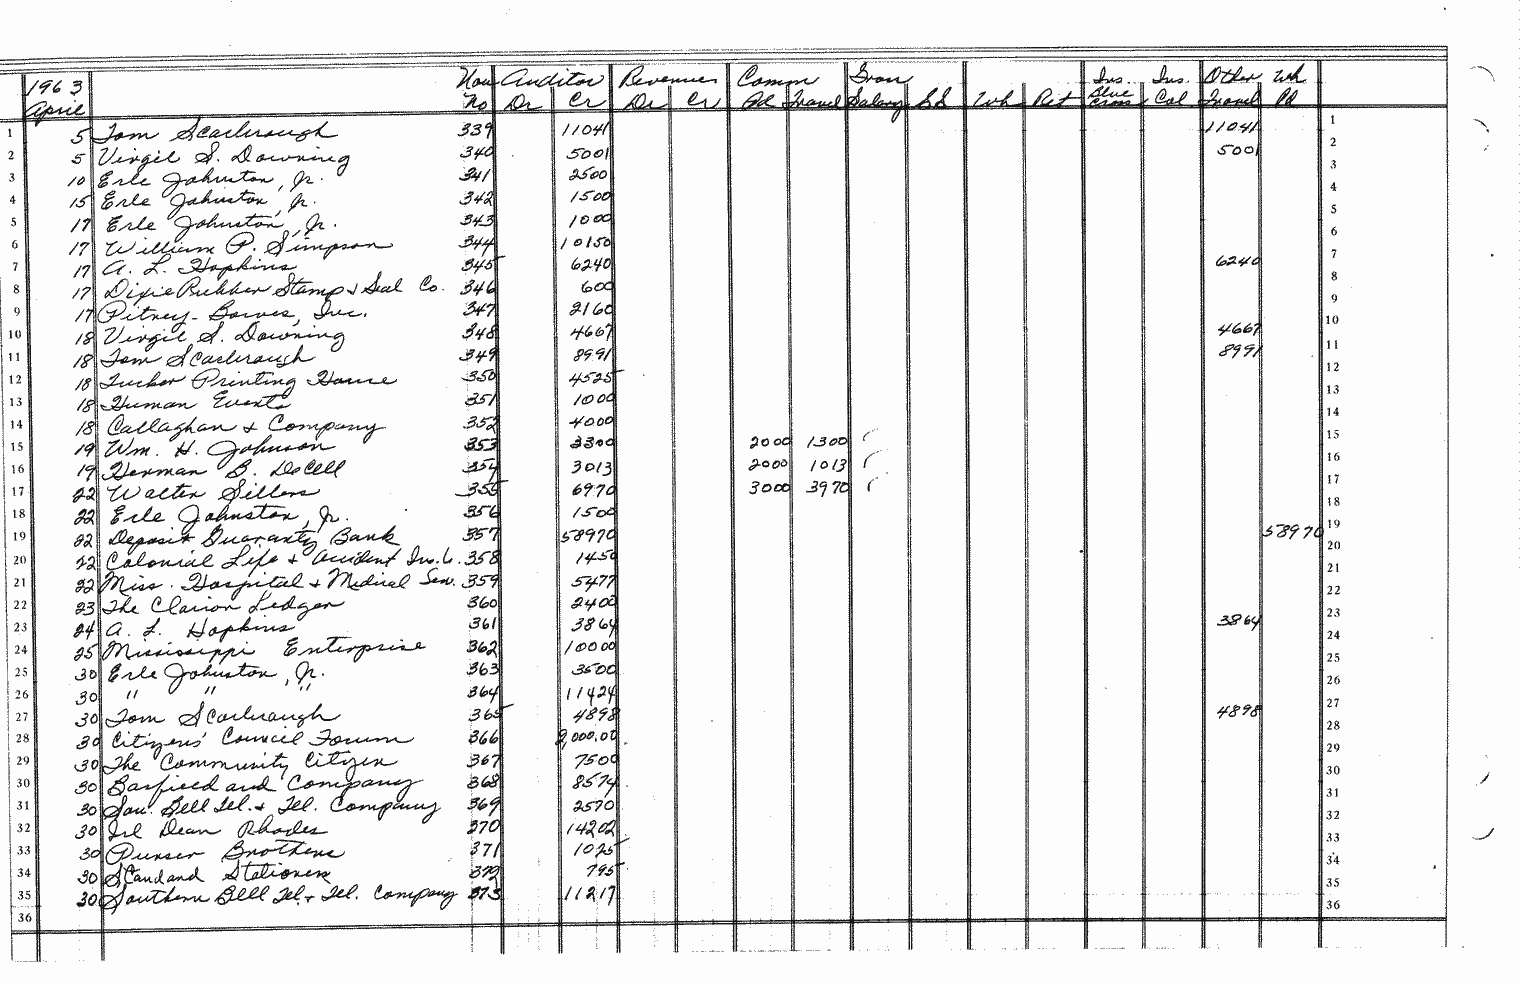 1963 Vou Auditor Revenues Comm Gross Ins. Ins. Other Wh
April No Dr Cr Dr Cr Pd Travel Salary SS Wh Ret Blue Cross Col Travel Pd
1 5 Tom Scarbrough 339 11041 11041 1
2 5 Virgil S. Downing 340 5001 5001 2
3 10 Erle Johnston, Jr. 341 2500 3
4 15 Erle Johnston, Jr. 342 1500 4
5 17 Erle Johnston, Jr. 343 1000 5
6 17 William P. Simpson 344 10150 6
7 17 A. L. Hopkins 345 6240 6240 7
8 17 Dixie Rubber Stamp & Seal Co. 346 600 8
9 17 Pitney-Bowes, Inc. 347 2160 9
10 18 Virgil S. Downing 348 4667 4667 10
11 18 Tom Scarbrough 349 8991 8991 11
12 18 Tucker Printing House 350 4525 12
13 18 Human Events 351 1000 13
14 18 Callaghan & Company 352 4000 14
15 19 Wm. H. Johnson 353 3300 2000 1300 15
16 19 Herman B. DeCell 354 3013 2000 1013 16
17 22 Walter Sillers 355 6970 3000 3970 17
18 22 Erle Johnston, Jr. 356 1500 18
19 22 Deposit Guaranty Bank 357 58970 58970 19
20 22 Colonial Life & Accident Ins. Co. 358 1450 20
21 22 Miss. Hospital & Medical Serv. 359 5477 21
22 23 The Clarion Ledger 360 2400 22
23 24 A. L. Hopkins 361 3864 3864 23
24 25 Mississippi Enterprise 362 10000 24
25 30 Erle Johnston, Jr. 363 3500 25
26 30 " " " 364 11424 26
27 30 Tom Scarbrough 365 4898 4898 27
28 30 Citizens' Council Forum 366 2,000.00 28
29 30 The Community Citizen 367 7500 29
30 30 Barfield and Company 368 8574 30
31 30 Sou. Bell Tel. & Tel. Company 369 2570 31
32 30 Irl Dean Rhodes 370 14202 32
33 30 Purser Brothers 371 1025 33
34 30 Standard Stationers 372 795 34
35 30 Southern Bell Tel. & Tel. Company 373 11217 35
36 36